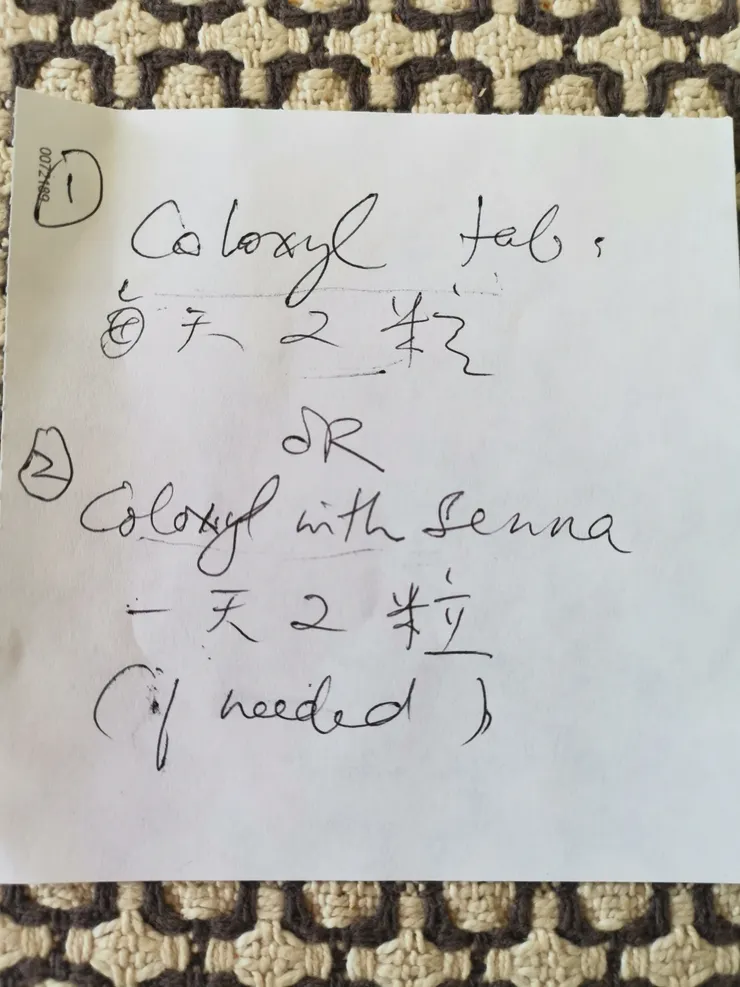 0072189
①
Coloxyl tab.
每天2粒
OR
②
Coloxyl with Senna
一天2粒
(if needed)